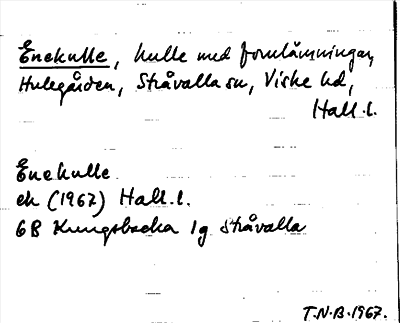 Enekulle, kulle med fornlämningar,
Hulegården, Stråvalla sn, Viske hd,
Hall. l.
Enekulle
ek (1967) Hall. l.
6B Kungsbacka 1g Stråvalla
T.N.B. 1967.